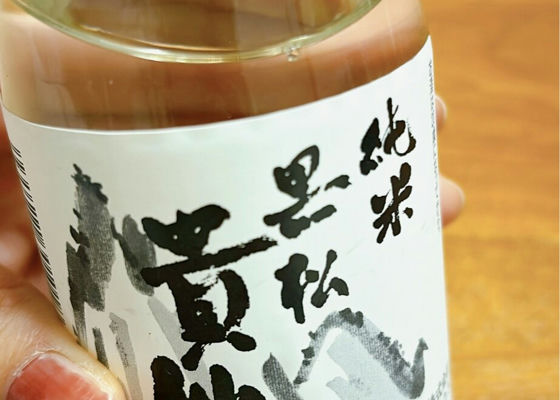 純米
黒松
貴